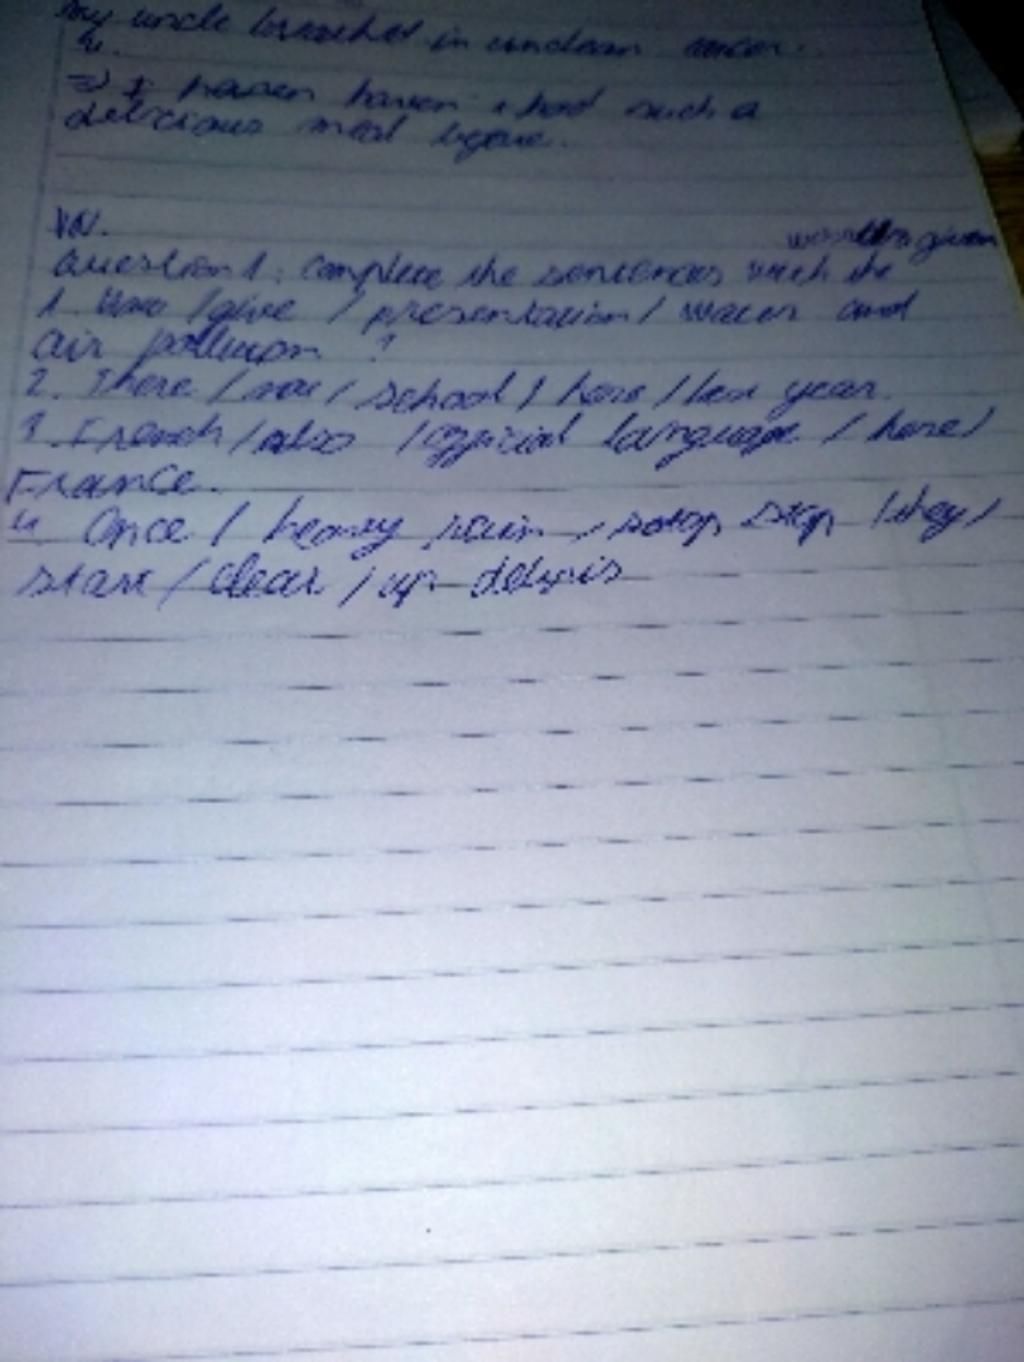 my uncle in unclean water.
4.
=> I haven haven't had such a
delicious meal before.
IV.
words given
Question 1: Complete the sentences with the
1. Who / give / presentation / water and
air pollution ?
2. There / / school / here / last year.
3. French / also / official language / here /
France.
4. Once / heavy rain / stop / they /
start / clear / up debris